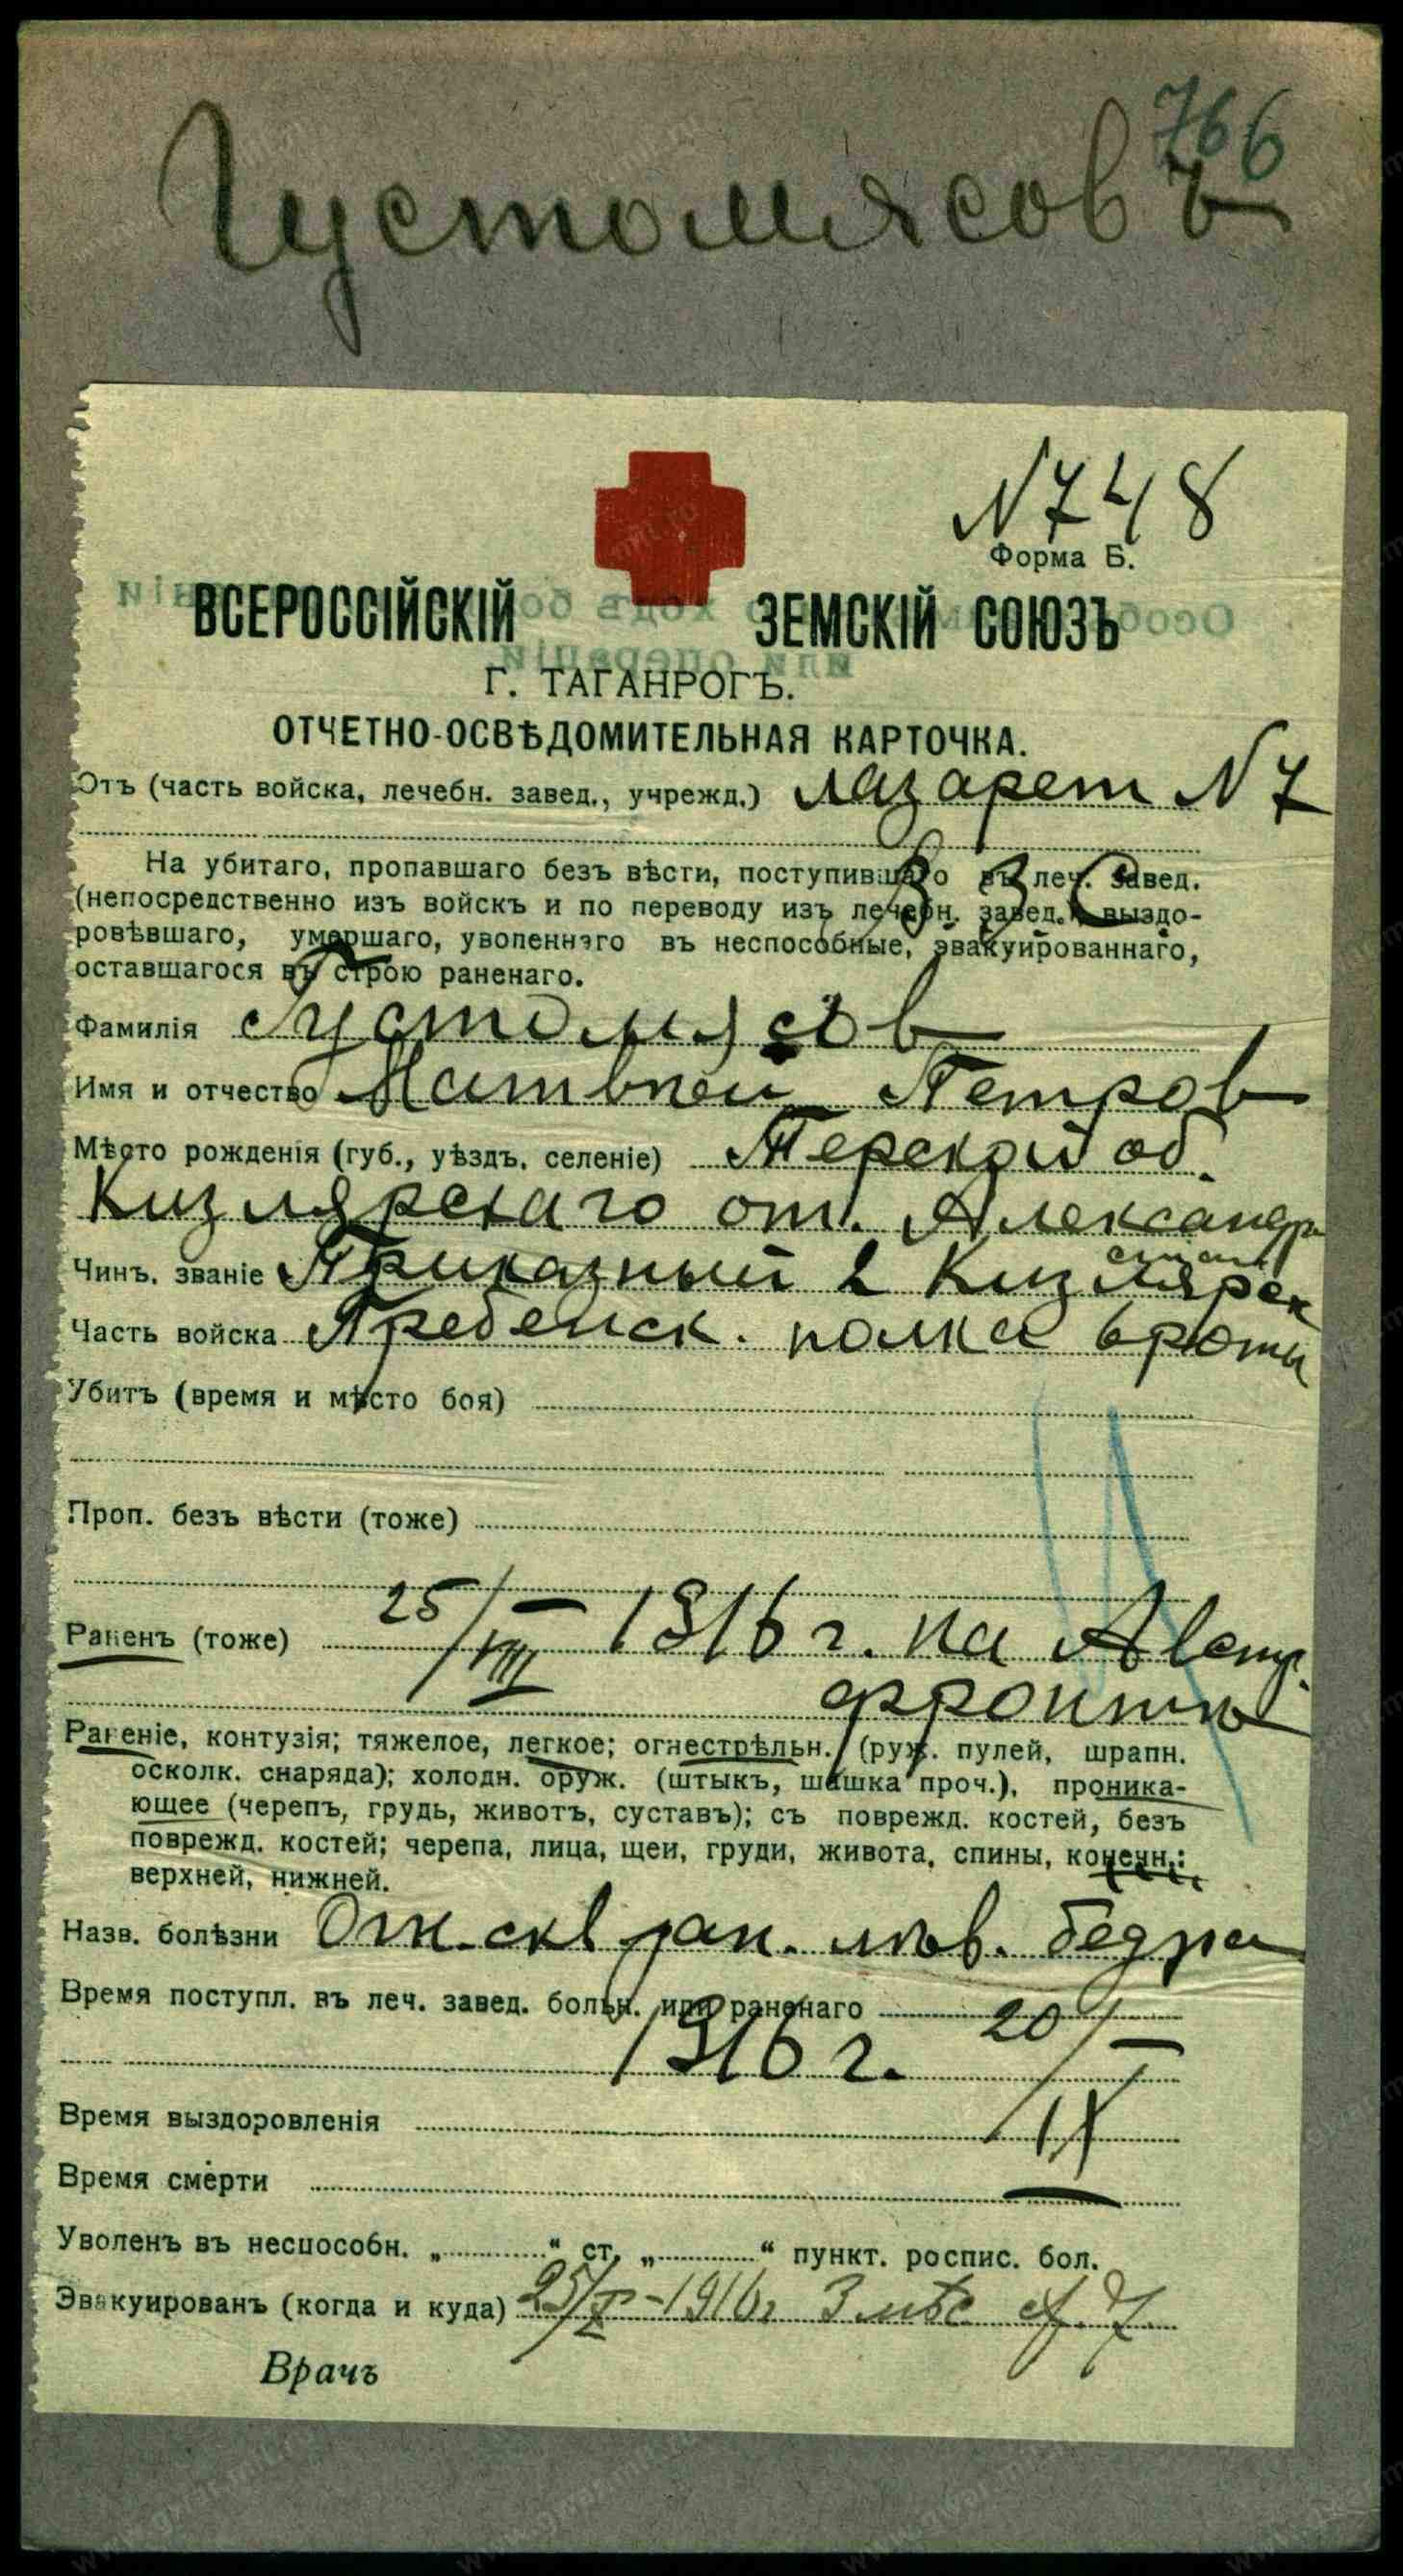 766
Густомясовъ
N 748
Форма Б.
ВСЕРОССІЙСКІЙ ЗЕМСКІЙ СОЮЗЪ
Г. ТАГАНРОГЪ.
ОТЧЕТНО-ОСВѢДОМИТЕЛЬНАЯ КАРТОЧКА.
Отъ (часть войска, лечебн. завед., учрежд.) Лазарет N 7
В З С
На убитаго, пропавшаго безъ вѣсти, поступившаго въ леч. завед.
(непосредственно изъ войскъ и по переводу изъ лечебн. завед. выздо-
ровѣвшаго, умершаго, уволеннаго въ неспособные, эвакуированнаго,
оставшагося въ строю раненаго.
Фамилія Густомясов
Имя и отчество Матвѣй Петров
Мѣсто рожденія (губ., уѣздъ, селеніе) Терской об.
Кизлярскаго от. Александр
стан
Чинъ, званіе Приказный 2 Кизлярск
Часть войска Гребенск. полка 6 роты
Убитъ (время и мѣсто боя)
Проп. безъ вѣсти (тоже)
Раненъ (тоже) 25/VIII 1916 г. на Австр.
фронтѣ
Раненіе, контузія; тяжелое, легкое; огнестрѣльн. (руж. пулей, шрапн.
осколк. снаряда); холодн. оруж. (штыкъ, шашка проч.), проника-
ющее (черепъ, грудь, животъ, суставъ); съ поврежд. костей, безъ
поврежд. костей; черепа, лица, шеи, груди, живота, спины, конечн.:
верхней, нижней.
Назв. болѣзни Огн. скв ран. лѣв. бедра
Время поступл. въ леч. завед. больн. или раненаго 20/IX
1916 г.
Время выздоровленія
Время смерти
Уволенъ въ неспособн. „ “ ст. „ “ пункт. роспис. бол.
Эвакуированъ (когда и куда) 25/X - 1916 г 3 мѣс
Врачъ